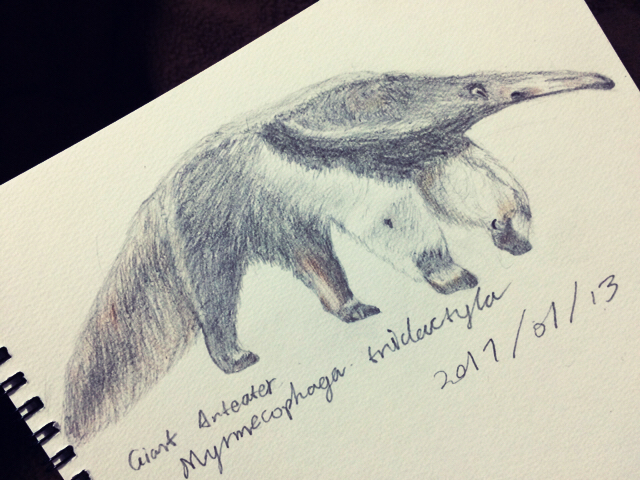 Giant Anteater
Myrmecophaga tridactyla
2017/01/13